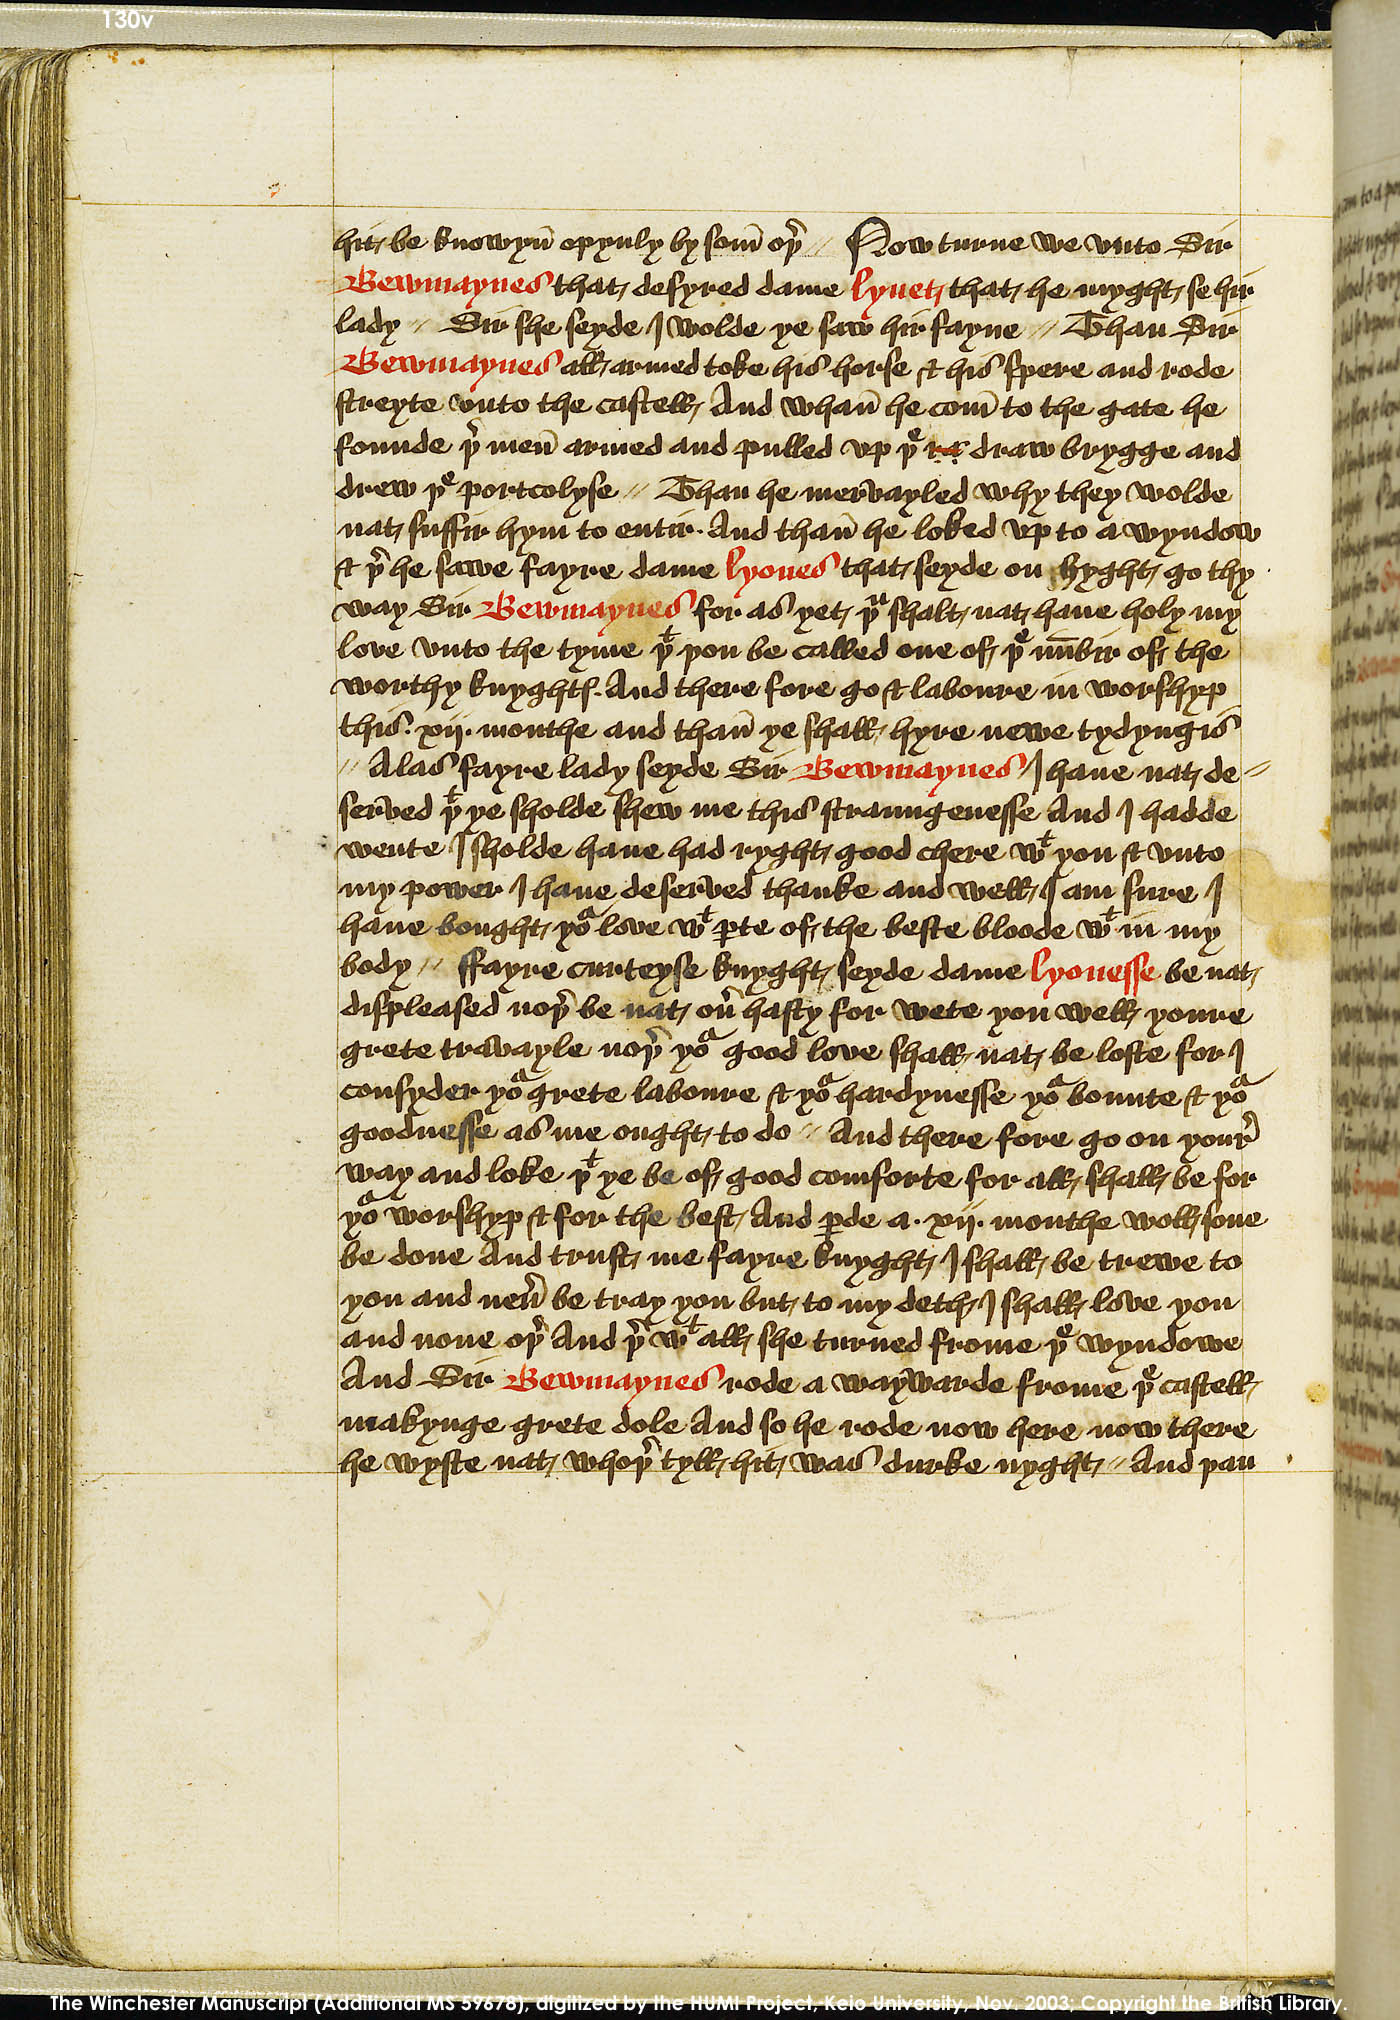 130v
hit be knowyn̄ opynly by som̄ oþ̛ // Now turne we vnto Sir
Bewmaynes that desyred dame lynet that he myght se hir
lady // Sir she seyde I wolde ye saw hir fayne // Than Sir
Bewmaynes all armed toke his horse & his spere and rode
streyte vnto the castell And whan̄ he com̄ to the gate he
founde þ̛ men̄ armed and pulled vp þᵉ draw brygge and
drew þᵉ portcolyse // Than he mervayled why they wolde
nat suffir hym to entir. And than̄ he loked vp to a wyndow
& þ̛ he sawe fayre dame lyones that seyde on hyght go thy
way Sir Bewmaynes for as yet þᵘ shalt nat haue holy my
love vnto the tyme þᵗ þou be called one of þᵉ nūbir of the
worthy knyghtꝭ. And there fore go & laboure in worshyp
this .xij. monthe and than̄ ye shall hyre newe tydyngis
// Alas fayre lady seyde Sir Bewmaynes I haue nat de=
served þᵗ ye sholde shew me this straungenesse And I hadde
wente I sholde haue had ryght good chere wᵗ you & vnto
my power I haue deserved thanke and well I am sure I
haue bought yoᵃ love wᵗ ꝑte of the beste bloode wᵗ in my
body // ffayre curteyse knyght seyde dame lyonesse be nat
displeased noþ̛ be nat ov̛ hasty for wete you well youre
grete travayle noþ̛ yoᵃ good love shall nat be loste for I
consyder yoᵃ grete laboure & yoᵃ hardynesse yoᵃ bounte & yoᵃ
goodnesse as me ought to do // And there fore go on your̛
way and loke þᵗ ye be of good comforte for all shall be for
yoᵃ worshyp & for the best And ꝑde a .xij. monthe woll sone
be done And trust me fayre knyght I shall be trewe to
you and nev̛ be tray you but to my deth I shall love you
and none oþ̛ And þ̛ wᵗ all she turned frome þᵉ wyndowe
And Sir Bewmaynes rode a waywarde frome þᵉ castell
makynge grete dole And so he rode now here now there
he wyste nat whoþ̛ tyll hit was durke nyght // And þan
The Winchester Manuscript (Additional MS 59678), digitized by the HUMI Project, Keio University, Nov. 2003; Copyright the British Library.